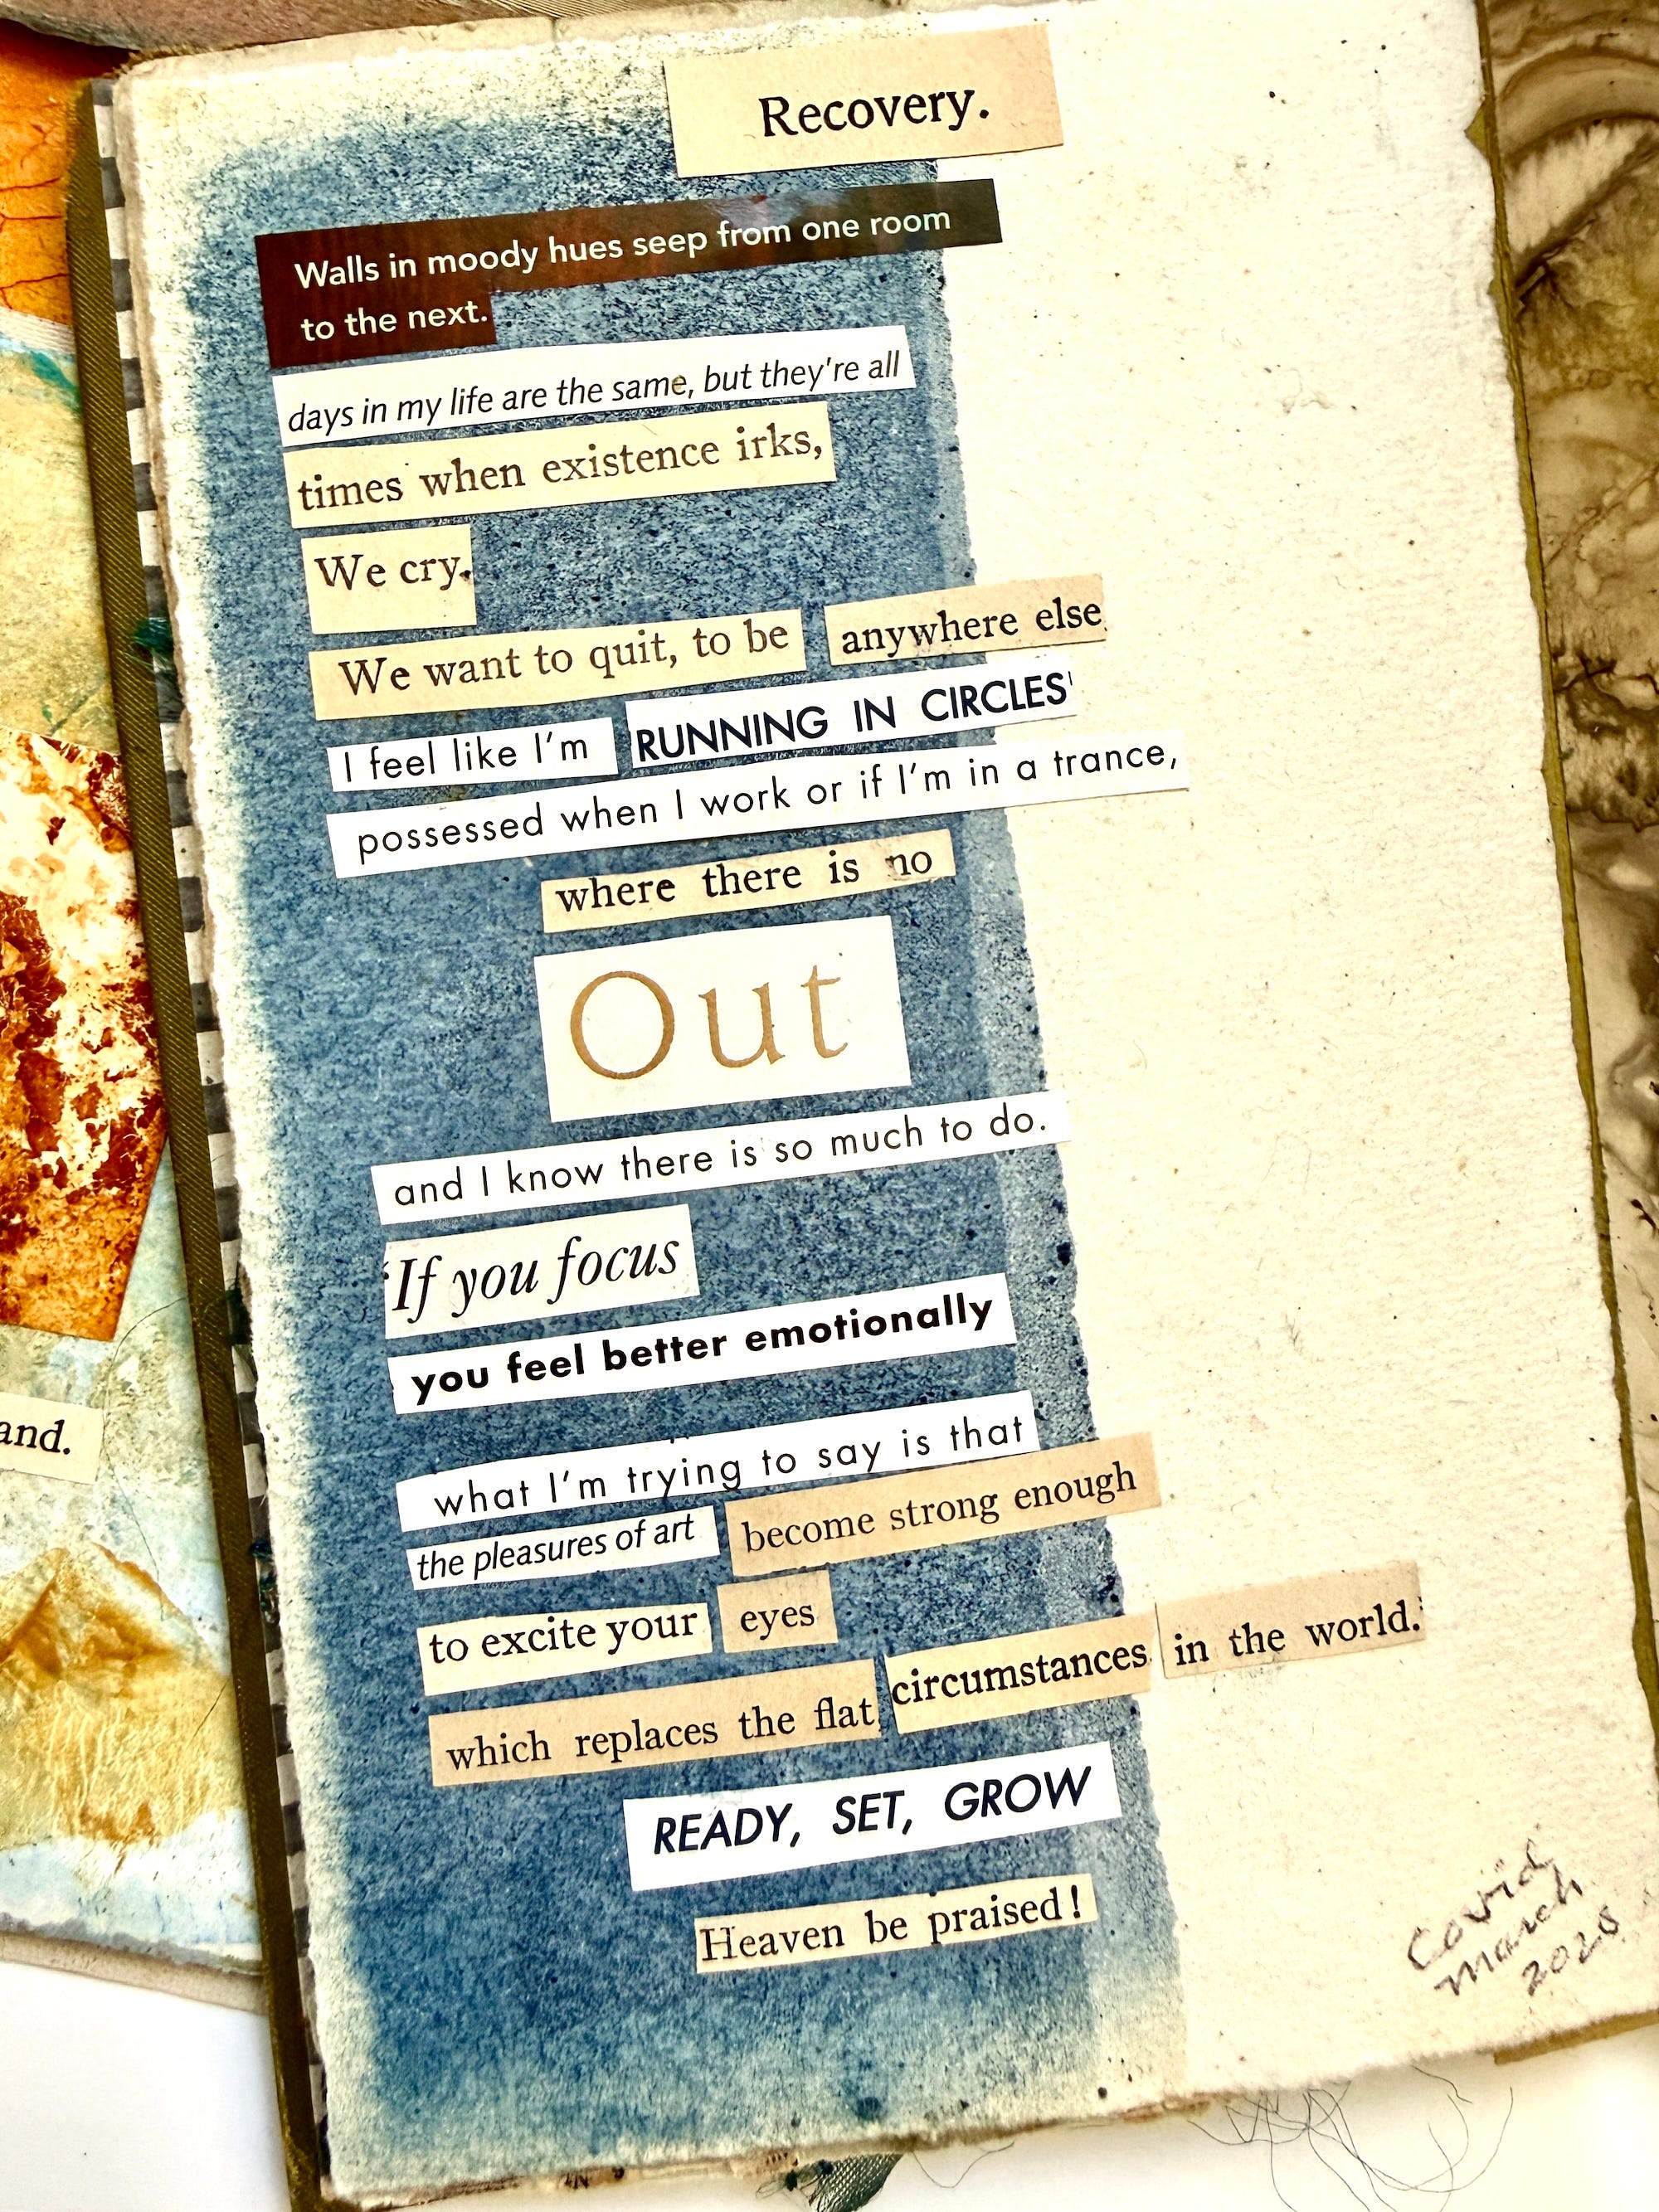 Recovery.
Walls in moody hues seep from one room
to the next.
days in my life are the same, but they're all
times when existence irks,
We cry.
We want to quit, to be anywhere else
I feel like I'm RUNNING IN CIRCLES'
possessed when I work or if I'm in a trance,
where there is no
Out
and I know there is so much to do.
'If you focus
you feel better emotionally
what I'm trying to say is that
the pleasures of art become strong enough
to excite your eyes
which replaces the flat circumstances in the world.
READY, SET, GROW
Heaven be praised!
and.
Covid
March